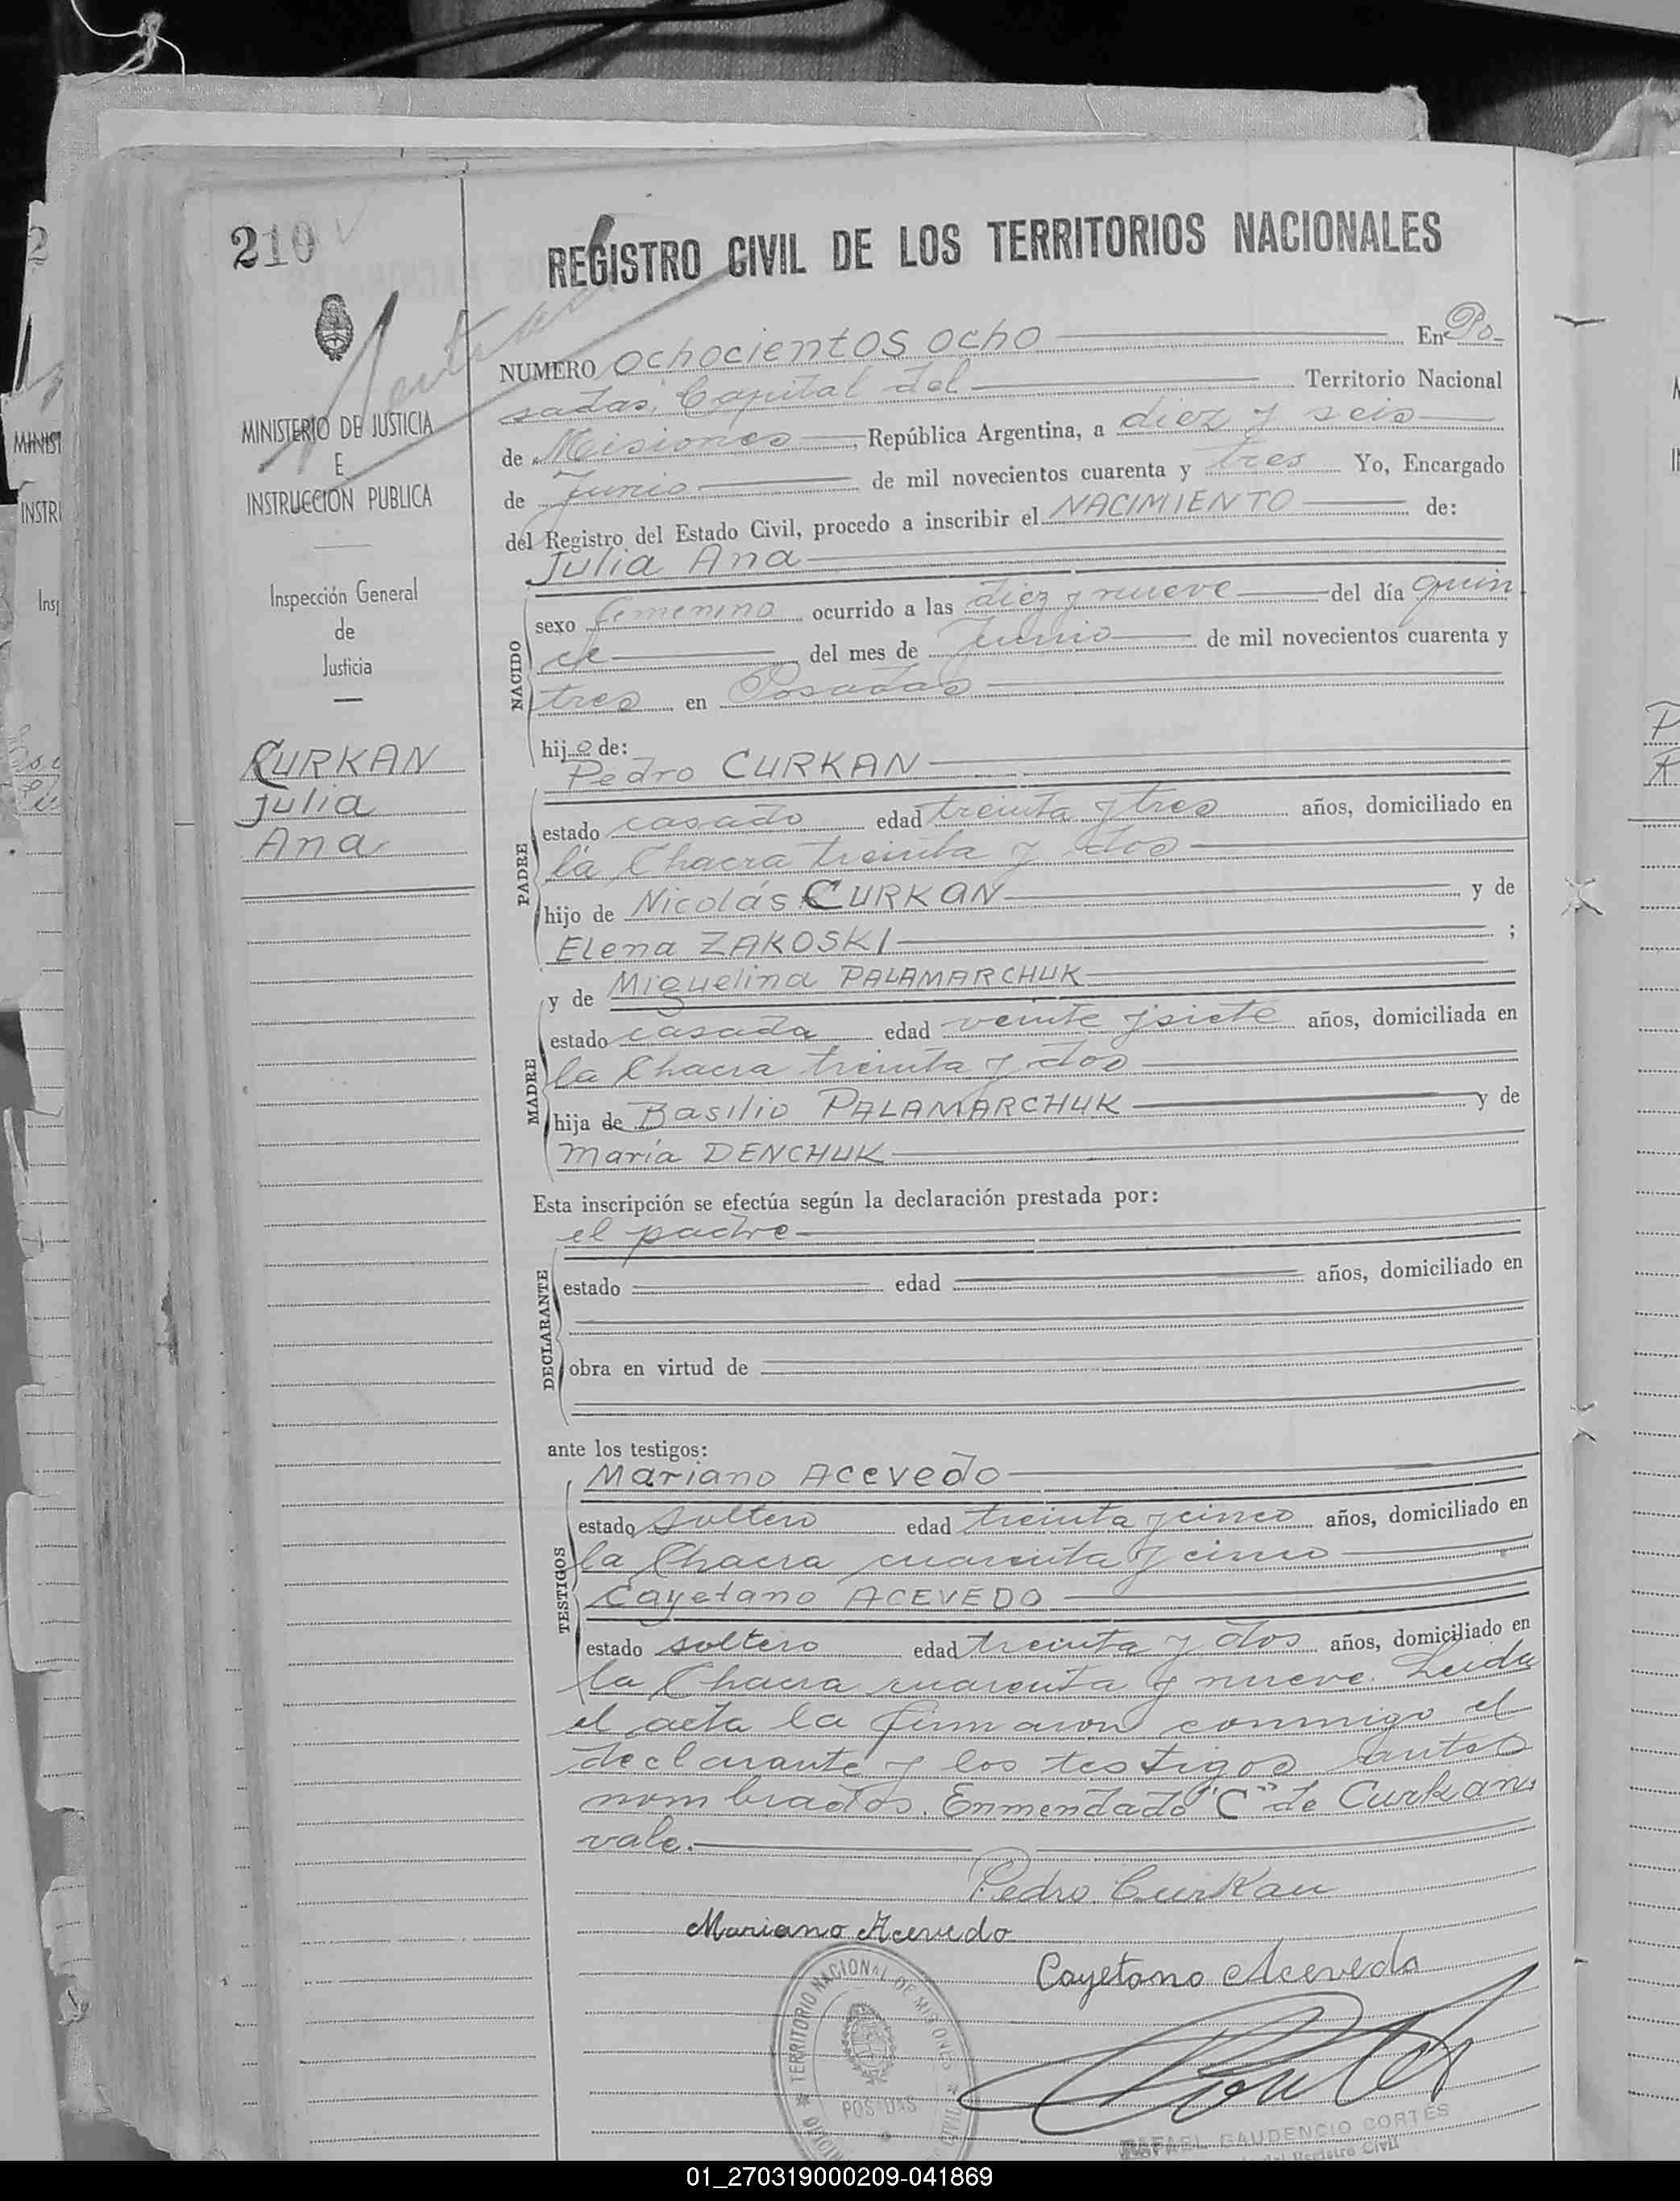 210
REGISTRO CIVIL DE LOS TERRITORIOS NACIONALES
NUMERO ochocientos ocho En Po-
sadas, Capital del Territorio Nacional
de Misiones, República Argentina, a diez y seis
de Junio de mil novecientos cuarenta y tres Yo, Encargado
del Registro del Estado Civil, procedo a inscribir el NACIMIENTO de:
Julia Ana
MINISTERIO DE JUSTICIA
E
INSTRUCCION PUBLICA
Inspección General
de
Justicia
CURKAN
Julia
Ana
NACIDO
sexo femenino ocurrido a las diez y nueve del día quin
ce del mes de Junio de mil novecientos cuarenta y
tres en Posadas
hijo de:
Pedro CURKAN
PADRE
estado casado edad treinta y tres años, domiciliado en
la Chacra treinta y dos
hijo de Nicolás CURKAN y de
Elena ZAKOSKI ;
y de Miguelina PALAMARCHUK
MADRE
estado casada edad veinte y siete años, domiciliada en
la Chacra treinta y dos
hija de Basilio PALAMARCHUK y de
María DENCHUK
Esta inscripción se efectúa según la declaración prestada por:
el padre
DECLARANTE
estado edad años, domiciliado en
obra en virtud de
ante los testigos:
Mariano Acevedo
TESTIGOS
estado soltero edad treinta y cinco años, domiciliado en
la Chacra cuarenta y cinco
Cayetano ACEVEDO
estado soltero edad treinta y dos años, domiciliado en
la Chacra cuarenta y nueve. Leida
el acta la firmaron conmigo el
declarante y los testigos antes
nombrados. Enmendado "C" de Curkan,
vale.
Pedro Curkan
Mariano Acevedo
Cayetano Acevedo
TERRITORIO NACIONAL DE MISIONES
POSADAS
RAFAEL GAUDENCIO CORTES
del Registro Civil
01_270319000209-041869